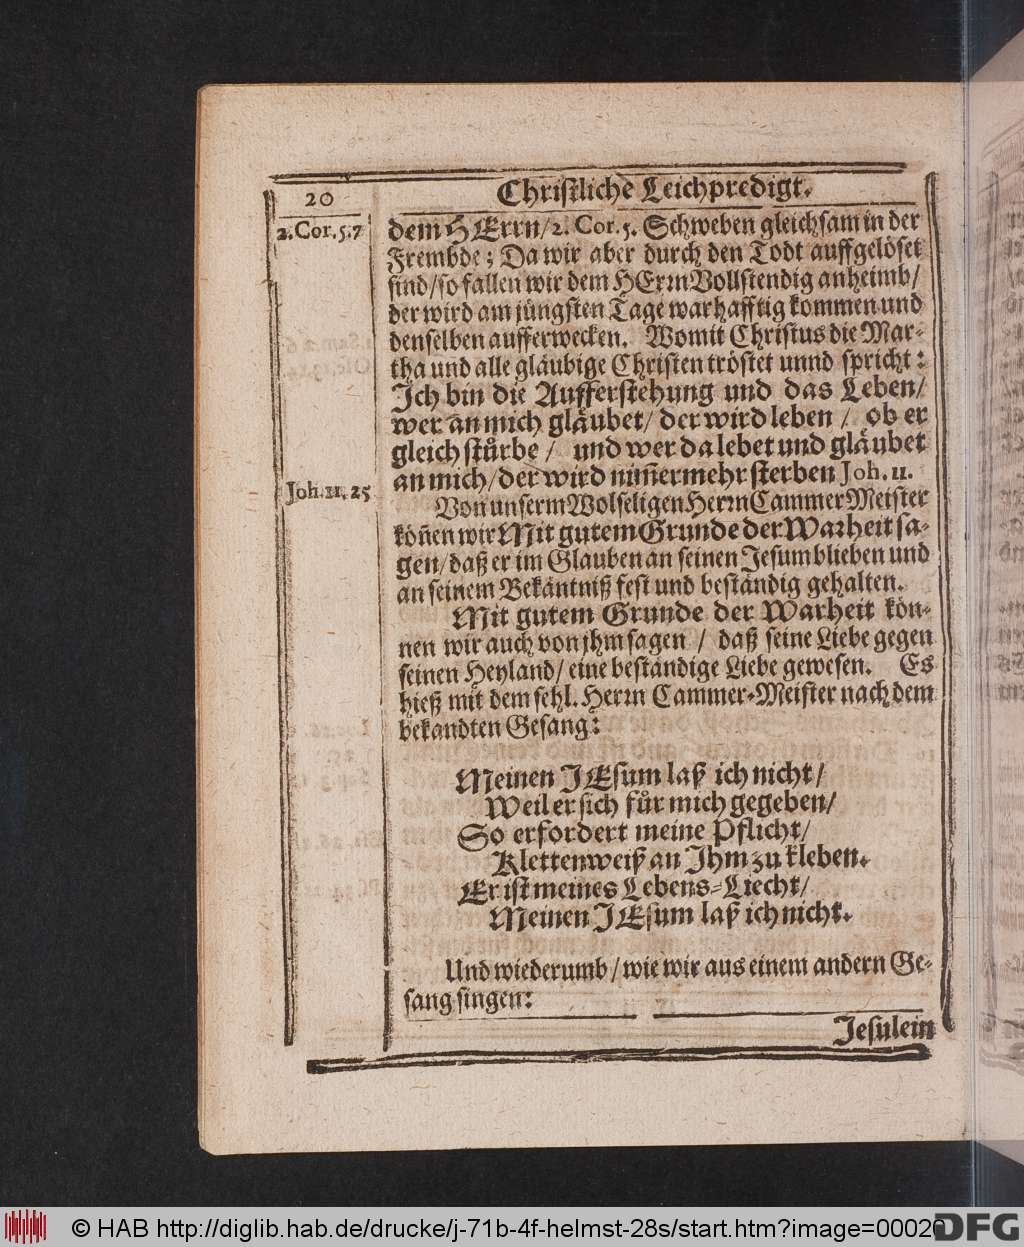 20
Christliche Leichpredigt.
2. Cor. 5. 7
dem HErrn/ 2. Cor. 5. Schweben gleichsam in der
Frembde; Da wir aber durch den Todt auffgelöset
sind/ so fallen wir dem HErrn Vollstendig anheimb/
der wird am jüngsten Tage warhafftig kommen und
denselben aufferwecken. Womit Christus die Mar-
tha und alle gläubige Christen tröstet unnd spricht:
Ich bin die Aufferstehung und das Leben/
wer an mich gläubet/ der wird leben / ob er
gleich stürbe / und wer da lebet und gläubet
an mich/ der wird nim̃ermehr sterben Joh. 11.
Joh. 11. 25
Von unserm Wolseligen Herrn Cammer Meister
kön̄en wir Mit gutem Grunde der Warheit sa-
gen/ daß er im Glauben an seinen Jesum blieben und
an seinem Bekäntniß fest und beständig gehalten.
Mit gutem Grunde der Warheit kön-
nen wir auch von jhm sagen / daß seine Liebe gegen
seinen Heyland/ eine beständige Liebe gewesen. Es
hieß mit dem sehl. Herrn Cammer-Meister nach dem
bekandten Gesang:
Meinen JEsum laß ich nicht/
Weil er sich für mich gegeben/
So erfordert meine Pflicht/
Klettenweiß an Ihm zu kleben.
Er ist meines Lebens-Liecht/
Meinen JEsum laß ich nicht.
Und wiederumb/ wie wir aus einem andern Ge-
sang singen:
Jesulein
© HAB http://diglib.hab.de/drucke/j-71b-4f-helmst-28s/start.htm?image=00020
DFG